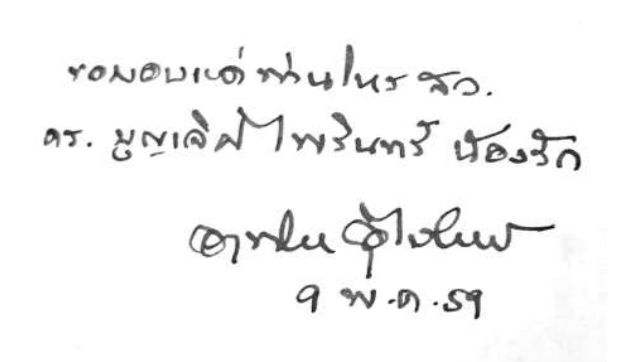 ขอมอบแด่ ท่านโหร สว.
ดร. บุญเลิศ ไพรินทร์ น้องรัก
9 พ.ค. 59